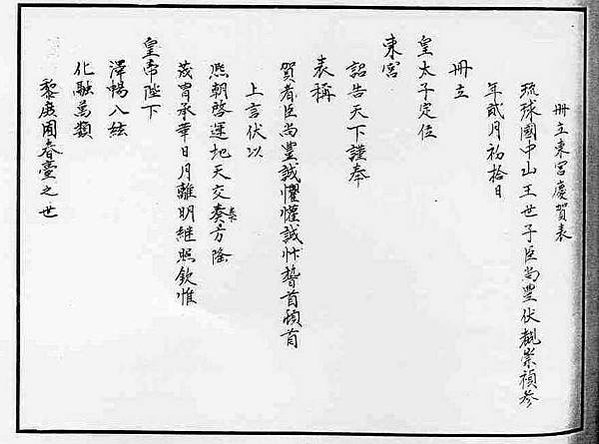 冊立東宮慶賀表
琉球國中山王世子臣尚豐伏覩崇禎參
年貳月初拾日
冊立
皇太子定位
東宮
詔告天下謹奉
表稱
賀者臣尚豐誠懽懽誠忭稽首頓首
上言伏以
熙朝啓運地天交奏泰方隆
茂胄承華日月離明繼照欽惟
皇帝陛下
澤暢八紘
化融萬類
黎庶囿春臺之世